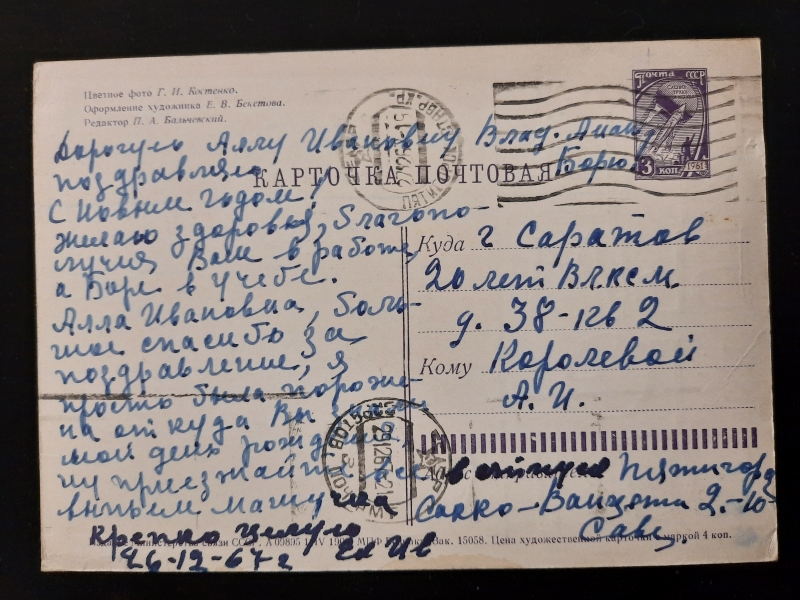 Цветное фото Г. И. Костенко.
Оформление художника Е. В. Бекетова.
Редактор П. А. Бальчевский.
ПОЧТА СССР
3 КОП
1961
КАРТОЧКА ПОЧТОВАЯ
Дорогую Аллу Ивановну Влад.
Борю
поздравляю
С новым годом!
желаю здоровья, благопо-
лучия Вам в работе,
а Боре в учебе.
Алла Ивановна, боль-
шое спасибо за
поздравление, я
просто была пораже-
на откуда Вы
мой день рождения
ну приезжайте
выпьем
Крепко целую
26-12-67 г Ел Ив
Куда г Саратов
20 лет ВЛКСМ
д. 38-кв 2
Кому Королевой
А. И.
Пятигор
Сакко-Ванцетти 2-10
Савц.
Министерства связи СССР. А 09895 Зак. 15058. Цена художественной карточки с маркой 4 коп.